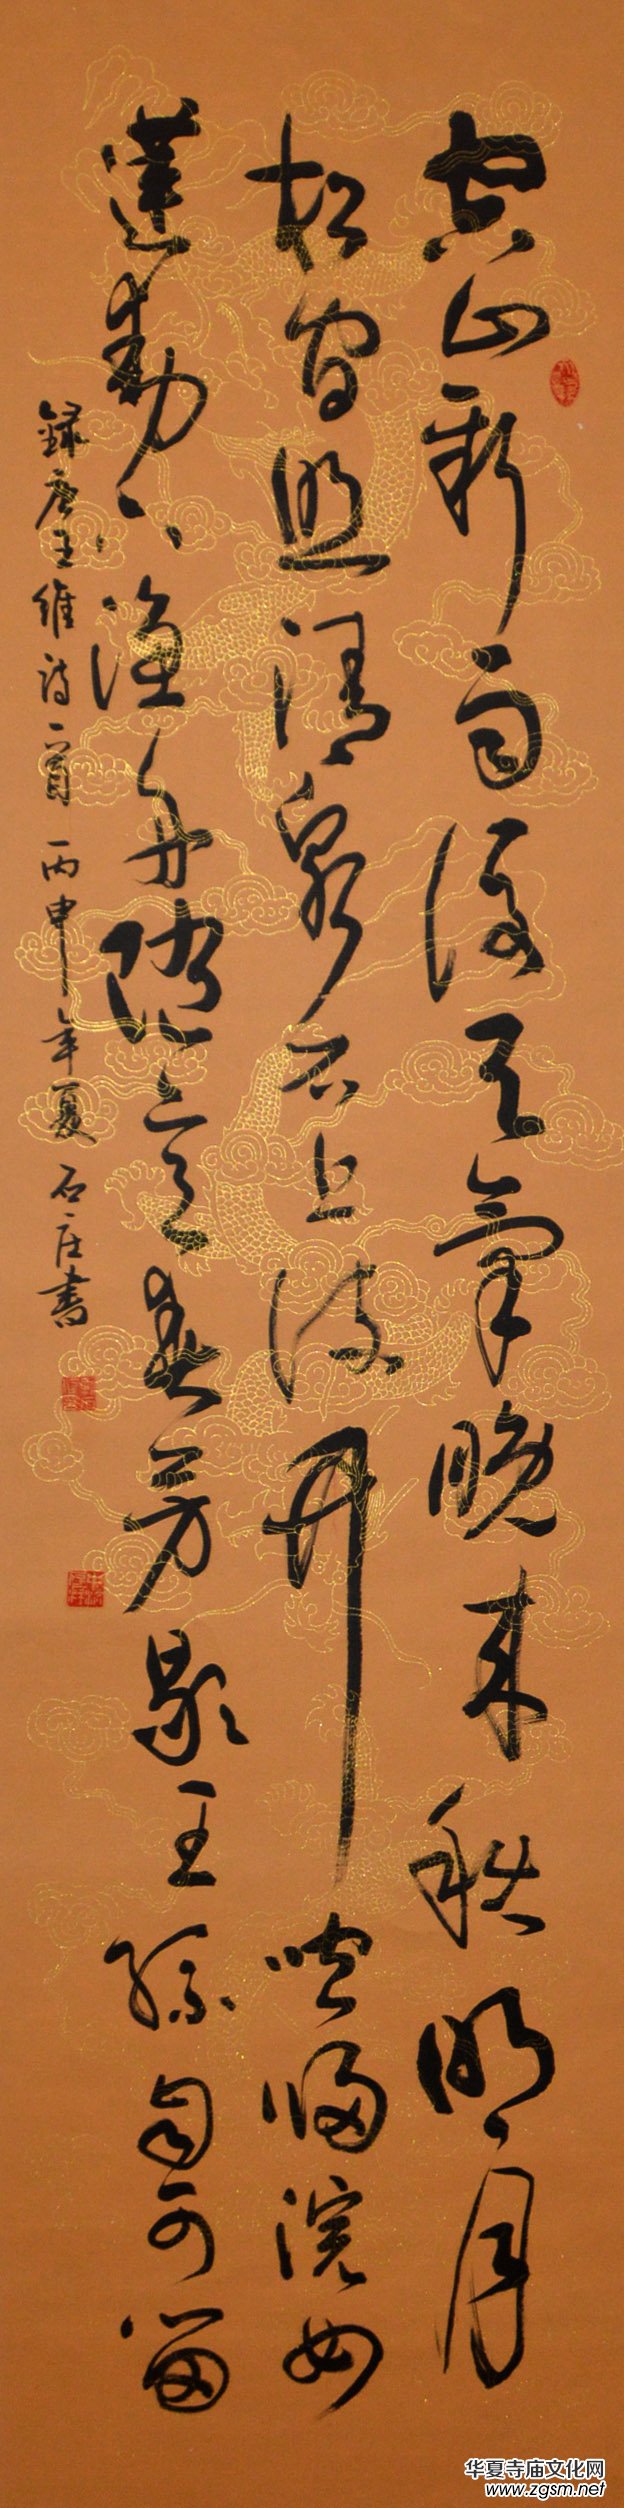 空山新雨後天氣晚來秋明月
松間照清泉石上流竹喧歸浣女
蓮動下漁舟隨意春芳歇王孫自可留
録唐王維詩一首 丙申年夏 石庄書
华夏寺庙文化网
www.zgsm.net